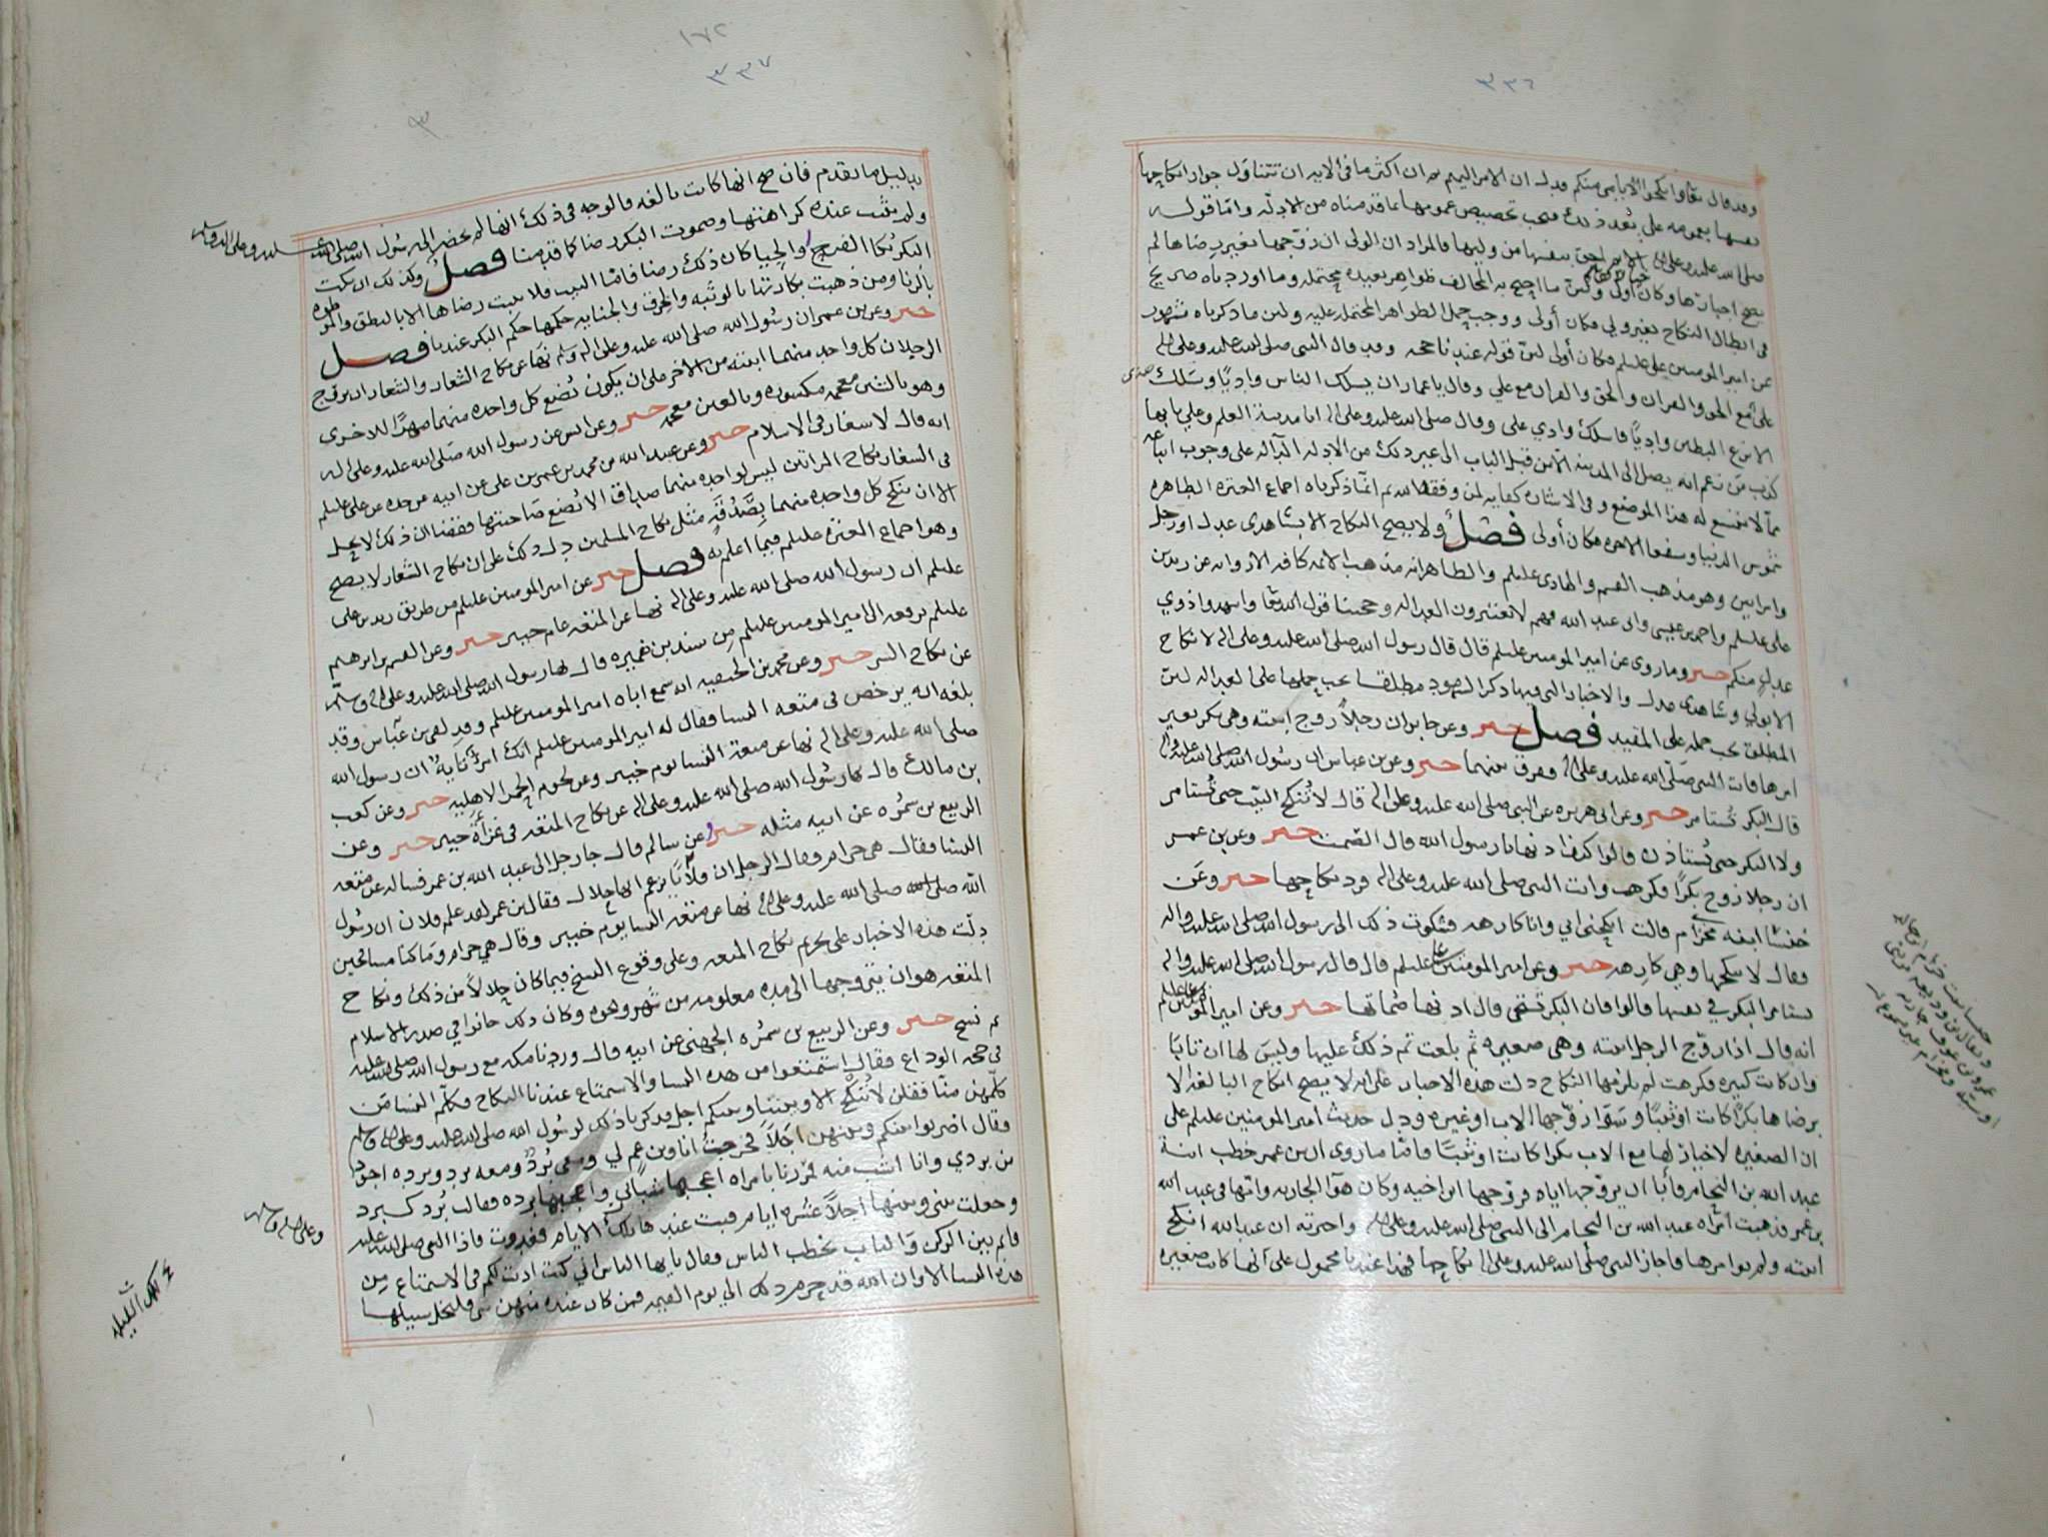 ٣٣٦
وقد قال تعالى وانكحوا الأيامى منكم
صلى الله عليه وعلى آله الايم احق بنفسها من وليها فالمراد ان الولي ان زوجها بغير رضاها لم
في ابطال النكاح بغير ولي فكان أولى ووجب حمل الظواهر المحتملة عليه ولان ما ذكرناه مشهور
عن امير المومنين عليلم فكان أولى لان قوله عندنا حجه وقد قال النبي صلى الله عليه وعلى اله
علي مع الحق والقران والحق والقران مع علي وقال يا عمار ان يسلك الناس واديًا وسلك علي
واديًا فاسلك وادي علي وقال صلى الله عليه وعلى اله انا مدينة العلم وعلي بابها
كذب من زعم انه يصل الى المدينة الا من قبل الباب الى غير ذلك من الادلة الدالة على وجوب اتباعه
فصل ولا يصح النكاح الا بشاهدي عدل او رجل
وامراتين وهو مذهب القسم والهادي عليلم
علي عليلم واحمد بن عيسى وابي عبد الله فهم لا يعتبرون العدالة وحجتنا قول الله تعا واشهدوا ذوي
عدل منكم خبر وما روي عن امير المومنين عليلم قال قال رسول الله صلى الله عليه وعلى اله لا نكاح
الا بولي وشاهدي عدل والاخبار التي فيها ذكر الشهود مطلقا يجب حملها على العدالة لان
المطلق يجب حمله على المقيد فصل خبر وعن جابر ان رجلاً زوج ابنته وهي بكر بغير
امرها فاتت النبي صلى الله عليه وعلى اله وفرق بينهما خبر وعن بن عباس ان رسول الله صلى الله عليه واله
قال البكر تُستامر خبر وعن ابي هريره عن النبي صلى الله عليه وعلى اله قال لا تُنكح الثيّب حتى تُستامر
ولا البكر حتى تُستاذن قالوا كيف اذنها يا رسول الله قال الصّمت خبر وعن بن عمر
ان رجلا زوج بكرًا فكرهت واتت النبي صلى الله عليه وعلى اله فرد نكاحها خبر وعن
خنسا ابنه خزام قالت انكحني ابي وانا كارهه فشكوت ذلك الى رسول الله صلى الله عليه واله
فقال لا تنكحها وهي كارهه خبر وعن امير المومنين علي عليلم قال قال رسول الله صلى الله عليه واله
تستامر البكر في نفسها قالوا فان البكر تستحي قال اذنها صُماتها خبر وعن امير المومنين علي عليلم
انه قال اذا زوّج الرجل ابنته وهي صغيره ثم بلغت تم ذلك عليها وليس لها ان تابَا
وان كانت كبيره فكرهت لم يلزمها النكاح دلت هذه الاخبار على انه لا يصح انكاح البالغه الا
برضاها بكرًا كانت او ثيبًا وسوا زوّجها الاب او غيره ودل حديث امير المومنين عليلم على
ان الصغيره لا خيار لها مع الاب بكرا كانت او ثيبًا فامّا ما روي ان بن عمر خطب ابنة
عبد الله بن النحام فأبا ان يزوّجها اياه فزوّجها ابن اخيه وكان هوَا الجاريه وامّها في عبد الله
بن عمر فذهبت امراه عبد الله بن النحام الى النبي صلى الله عليه وعلى اله واخبرته ان عبد الله انكح
ابنته ولم يوامرها فاجاز النبي صلى الله عليه وعلى اله نكاحها فهذا عندنا محمول على انها كانت صغيره
١٧٢
٣٣٧
بدليل ما تقدم فان صح انها كانت بالغه فالوجه في ذلك انها لم تحضر الى رسول الله صلى الله عليه وعلى اله وسلم
ولم يثبت عنده كراهتها وصموت البكر رضا كما قدمنا فصل وكذلك ان سكت
البكر والحيا كان ذلك رضا فامّا الثيب فلا يثبت رضاها الا بالنطق
بالزنا ومن ذهبت بكارتها بالوثبه والخرق والجنايه حكمها حكم البكر عندنا فصل
خبر وعن بن عمر ان رسول الله صلى الله عليه وعلى اله وسلم نهَا عن نكاح الشغار والشغار ان يزوج
الرجلان كل واحد منهما ابنته من الاخر على ان يكون بُضع كل واحده منهما مهرًا للاخرى
وهو بالشين معجمه مكسوره وبالغين معجمه خبر وعن انس عن رسول الله صلى الله عليه وعلى اله
انه قال لا شغار في الاسلام خبر وعن عبد الله بن محمد بن عمر بن علي عن ابيه عن جده عن علي عليلم
في الشغار نكاح المراتين ليس لواحده منهما صداق الا بُضع صاحبتها فقضا ان ذلك لا يحل
الا ان ينكح كل واحده منهما بِصَدُقَةٍ مثل نكاح المسلمين دل ذلك على ان نكاح الشغار لا يصح
وهو اجماع العترة عليلم فيما اعلم به فصل خبر عن امير المومنين عليلم من طريق زيد بن علي
عليلم ان رسول الله صلى الله عليه وعلى اله نها عن المتعه عام خيبر خبر وعن القسم بن ابرهيم
عليلم يرفعه الى امير المومنين عليلم من سند بن ضميره قال نها رسول الله صلى الله عليه وعلى اله وسلم
عن نكاح السر خبر وعن محمد بن الحنفيه انه سمع اباه امير المومنين عليلم وقد لقي بن عبّاس وقد
بلغه انه يرخص في متعه النسا فقال له امير المومنين عليلم انك امرؤ تايه ان رسول الله
صلى الله عليه وعلى اله نها عن متعة النسا يوم خيبر وعن لحوم الحمر الاهليه خبر وعن كعب
بن مالك قال نها رسول الله صلى الله عليه وعلى اله عن نكاح المتعه في غزاة خيبر خبر وعن
الربيع بن سمره عن ابيه مثله خبر وعن سالم قال جا رجل الى عبد الله بن عمر فساله عن متعه
النسا فقال هي حرام وقال الرجل ان فلانًا يزعم انها حلال فقال بن عمر لقد علم فلان ان رسول
الله صلى الله عليه وعلى اله نها عن متعه النسا يوم خيبر وقال هي حرام وما كنا مسافحين
دلّت هذه الاخبار على تحريم نكاح المتعه وعلى وقوع النسخ فيما كان حلالاً من ذلك ونكاح
المتعه هو ان يتزوجها الى مده معلومه من شهر ونحوه وكان ذلك جائزا في صدر الاسلام
ثم نسخ خبر وعن الربيع بن سمُره الجهني عن ابيه قال وردنا مكه مع رسول الله صلى الله عليه
في حجه الوداع فقال استمتعوا من هذه النسا والاستمتاع عندنا النكاح فكلّم النسا من
كلّمهن منّا فقلن لا نُنكح الا وبيننا وبينكم اجل فذكرنا ذلك لرسول الله صلى الله عليه وعلى اله وسلم
وقال اضربوا بينكم وبينهن اجَلاً فخرجتُ انا وبن عم لي ومعي بُردٌ ومعه برد وبرده اجود
من بردي وانا اشب منه فمررنا بامراه اعجبها شبابي واعجبها برده فقالت بُرد كبرد
وجعلت بيني وبينها اجلاً عشره ايام فبت عندها تلك الايام فغدوت فاذا النبي صلى الله عليه
قائم بين الركن والباب يخطب الناس وقال يايها الناس اني كنت اذنت لكم في الاستمتاع من
هذه النسا الا وان الله قد حرم ذلك الى يوم القيمه فمن كان عنده منهن شي فليخل سبيلها